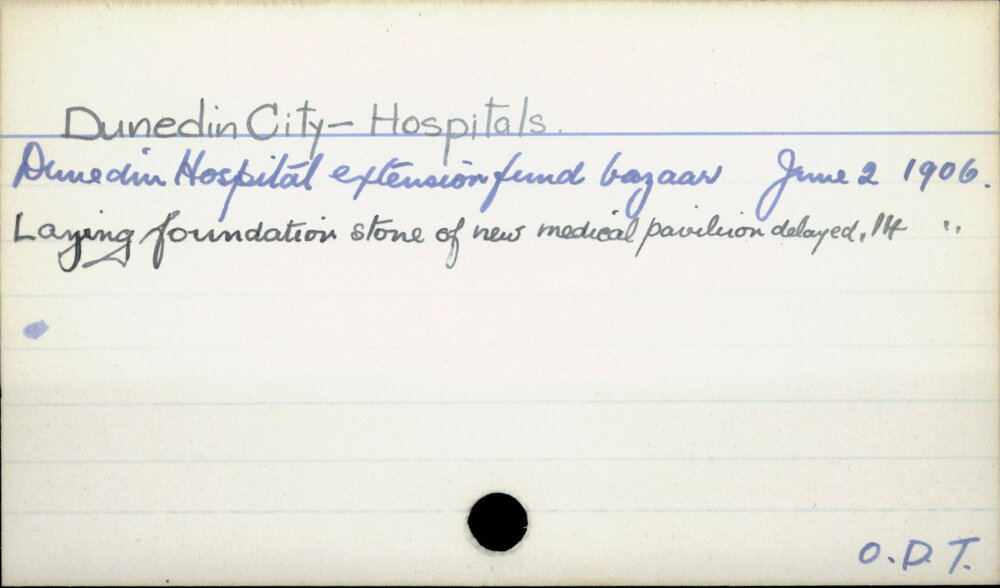 Dunedin City - Hospitals.
Dunedin Hospital extension fund bazaar June 2 1906.
Laying foundation stone of new medical pavilion delayed, 14 "
O.D.T.